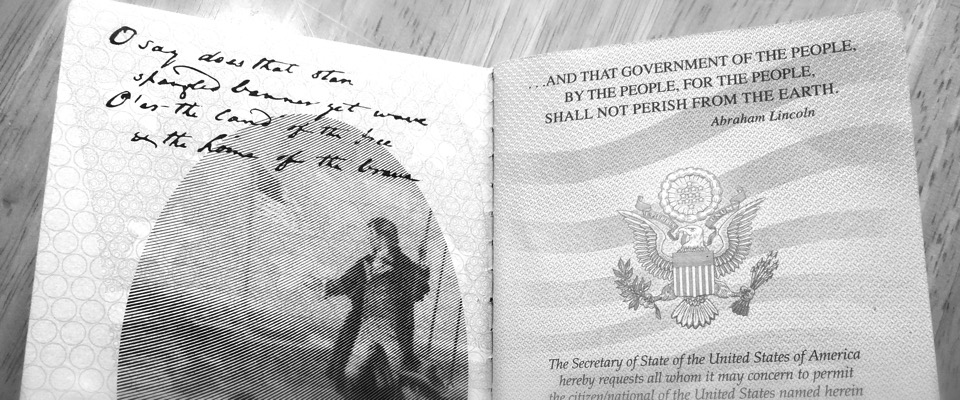 O say does that star
spangled banner yet wave
O'er the land of the free
& the home of the brave
. . .AND THAT GOVERNMENT OF THE PEOPLE,
BY THE PEOPLE, FOR THE PEOPLE,
SHALL NOT PERISH FROM THE EARTH.
Abraham Lincoln
The Secretary of State of the United States of America
hereby requests all whom it may concern to permit
the citizen/national of the United States named herein